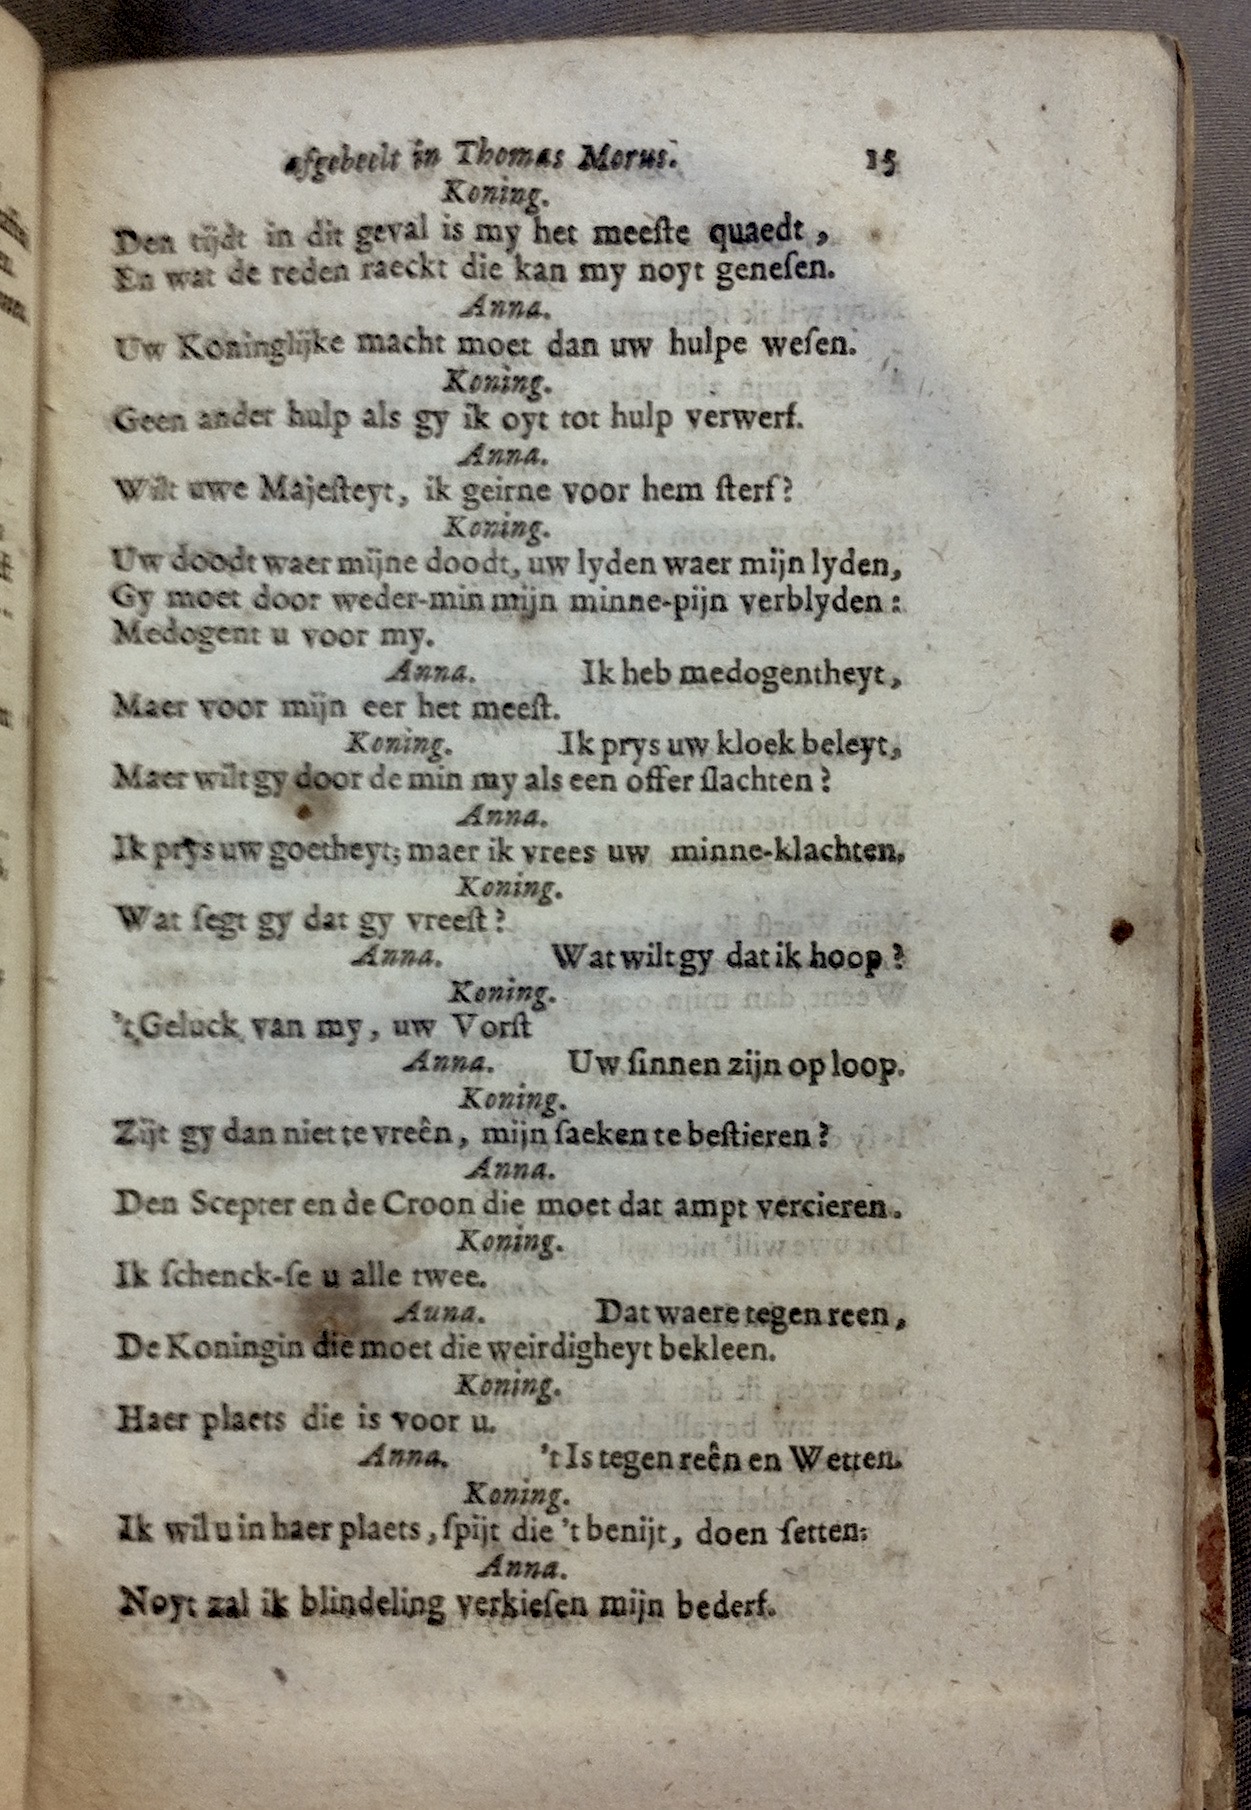 afgebeelt in Thomas Morus. 15
Koning.
Den tijdt in dit geval is my het meeſte quaedt,
En wat de reden raeckt die kan my noyt geneſen.
Anna.
Uw Koninglijke macht moet dan uw hulpe weſen.
Koning.
Geen ander hulp als gy ik oyt tot hulp verwerf.
Anna.
Wilt uwe Majeſteyt, ik geirne voor hem ſterf?
Koning.
Uw doodt waer mijne doodt, uw lyden waer mijn lyden,
Gy moet door weder-min mijn minne-pijn verblyden:
Medogent u voor my.
Anna. Ik heb medogentheyt,
Maer voor mijn eer het meeſt.
Koning. Ik prys uw kloek beleyt,
Maer wilt gy door de min my als een offer ſlachten?
Anna.
Ik prys uw goetheyt; maer ik vrees uw minne-klachten.
Koning.
Wat ſegt gy dat gy vreeſt?
Anna. Wat wilt gy dat ik hoop?
Koning.
't Geluck van my, uw Vorſt
Anna. Uw ſinnen zijn op loop.
Koning.
Zijt gy dan niet te vreên, mijn ſaeken te beſtieren?
Anna.
Den Scepter en de Croon die moet dat ampt vercieren.
Koning.
Ik ſchenck-ſe u alle twee.
Auna. Dat waere tegen reen,
De Koningin die moet die weirdigheyt bekleen.
Koning.
Haer plaets die is voor u.
Anna. 't Is tegen reên en Wetten.
Koning.
Ik wil u in haer plaets, ſpijt die 't benijt, doen ſetten.
Anna.
Noyt zal ik blindeling verkieſen mijn bederf.